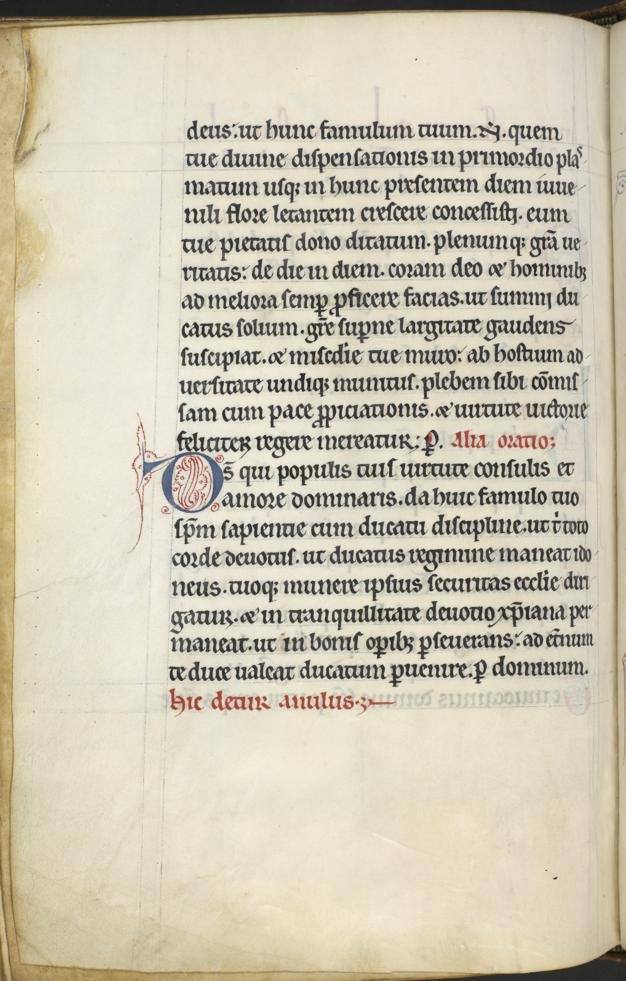 deus. ut hunc famulum tuum .N. quem
tue diuine dispensationis in primordio plaˢ
matum usq; in hunc presentem diem iuue
nili flore letantem crescere concessisti. eum
tue pietatis dono ditatum. plenumq; gr̄a ue
ritatis: de die in diem. coram deo & hominib;
ad meliora semꝑ ꝓficere facias. ut summi du
catus solium. gr̄e suꝑne largitate gaudens
suscipiat. & misc̄die tue muro: ab hostium ad
uersitate undiq; munitus. plebem sibi cōmis
sam cum pace ꝓpiciationis. & uirtute uictorie
feliciter regere mereatur: ꝑ. Alia oratio;
D̄s qui populis tuis uirtute consulis et
amore dominaris. da huic famulo tuo
sp̄m sapientie cum ducatu discipline. ut t̄ toto
corde deuotus. ut ducatus regimine maneat ido
neus. tuoq; munere ipsius securitas eccl̄ie diri
gatur. & in tranquillitate deuotio xp̄iana per
maneat. ut in bonis oꝑib; ꝑseuerans: ad et̄num
te duce ualeat ducatum ꝑuenire. ꝑ dominum.
hic detur anulus.